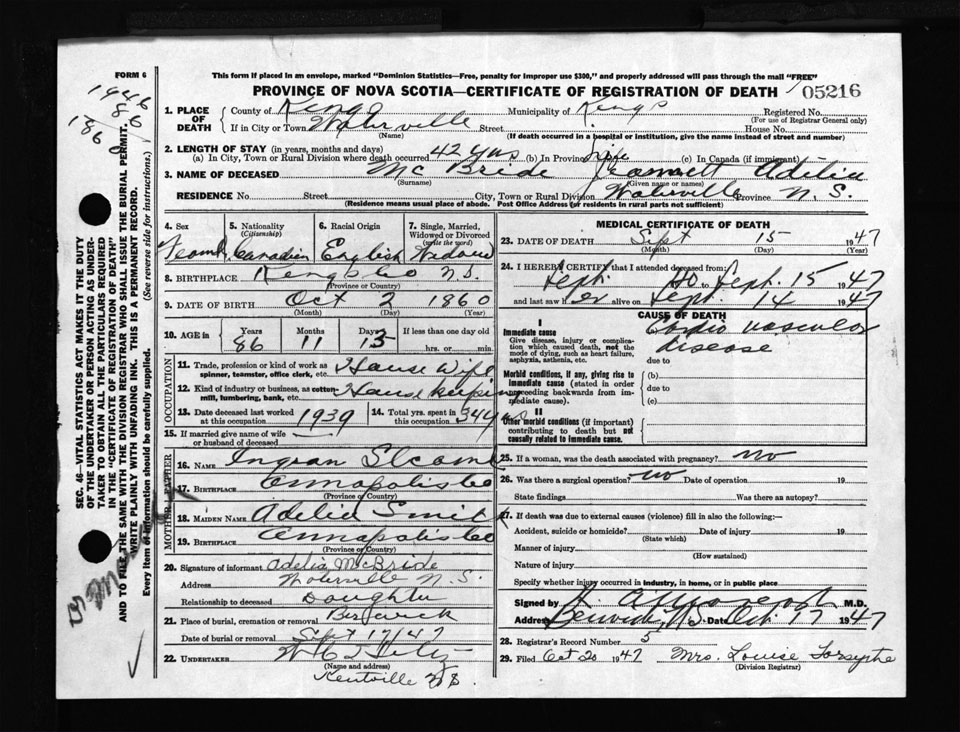 FORM 6
This form if placed in an envelope, marked "Dominion Statistics—Free, penalty for improper use $300," and properly addressed will pass through the mail "FREE"
PROVINCE OF NOVA SCOTIA—CERTIFICATE OF REGISTRATION OF DEATH 05216
1946
8 6
186 0
1. PLACE OF DEATH County of Kings Municipality of Kings Registered No.
(For use of Registrar General only)
If in City or Town Waterville Street House No.
(Name) (If death occurred in a hospital or institution, give the name instead of street and number)
2. LENGTH OF STAY (in years, months and days)
(a) In City, Town or Rural Division where death occurred 42 yrs (b) In Province Life (c) In Canada (if immigrant)
3. NAME OF DECEASED McBride Adelia
(Surname) (Given name or names)
RESIDENCE No. Street City, Town or Rural Division Waterville Province N.S.
(Residence means usual place of abode. Post Office Address for residents in rural parts not sufficient)
4. Sex 5. Nationality (Citizenship) 6. Racial Origin 7. Single, Married, Widowed or Divorced (write the word)
Canadian English Widow
8. BIRTHPLACE Kings Co N.S.
(Province or Country)
9. DATE OF BIRTH Oct 2 1860
(Month) (Day) (Year)
10. AGE in Years Months Days If less than one day old
86 11 13 hrs. or min.
OCCUPATION
11. Trade, profession or kind of work as spinner, teamster, office clerk, etc. House Wife
12. Kind of industry or business, as cotton-mill, lumbering, bank, etc. House keeping
13. Date deceased last worked at this occupation 1939 14. Total yrs. spent in this occupation 34 yrs
15. If married give name of wife or husband of deceased —
FATHER
16. NAME
17. BIRTHPLACE Annapolis Co
(Province or Country)
MOTHER
18. MAIDEN NAME Adelia Smith
19. BIRTHPLACE Annapolis Co
(Province or Country)
20. Signature of informant Adelia McBride
Address Waterville N.S.
Relationship to deceased Daughter
21. Place of burial, cremation or removal Berwick
Date of burial or removal Sept 17/47
22. UNDERTAKER
(Name and address)
Kentville N.S.
MEDICAL CERTIFICATE OF DEATH
23. DATE OF DEATH Sept 15 1947
(Month) (Day) (Year)
24. I HEREBY CERTIFY that I attended deceased from:
Sept. to Sept. 15 1947
and last saw her alive on Sept. 14 1947
CAUSE OF DEATH
I
Immediate cause Cardio vascular
Give disease, injury or complication which caused death, not the mode of dying, such as heart failure, asphyxia, asthenia, etc. disease
due to
Morbid conditions, if any, giving rise to immediate cause (stated in order proceeding backwards from immediate cause). (b)
due to
(c)
II
Other morbid conditions (if important) contributing to death but not causally related to immediate cause.
25. If a woman, was the death associated with pregnancy? no
26. Was there a surgical operation? no Date of operation 19
State findings Was there an autopsy?
27. If death was due to external causes (violence) fill in also the following:—
Accident, suicide or homicide? Date of injury 19
(State which)
Manner of injury
(How sustained)
Nature of injury
Specify whether injury occurred in industry, in home, or in public place
Signed by M.D.
Address Berwick, N.S. Date Oct. 17 1947
28. Registrar's Record Number 5
29. Filed Oct 20 1947 Mrs. Louise Forsythe
(Division Registrar)
SEC. 46—VITAL STATISTICS ACT MAKES IT THE DUTY
OF THE UNDERTAKER OR PERSON ACTING AS UNDER-
TAKER TO OBTAIN ALL THE PARTICULARS REQUIRED
IN THE "CERTIFICATE OF REGISTRATION OF DEATH"
AND TO FILE THE SAME WITH THE DIVISION REGISTRAR WHO SHALL ISSUE THE BURIAL PERMIT.
WRITE PLAINLY WITH UNFADING INK. THIS IS A PERMANENT RECORD.
Every item of information should be carefully supplied. (See reverse side for instructions.)